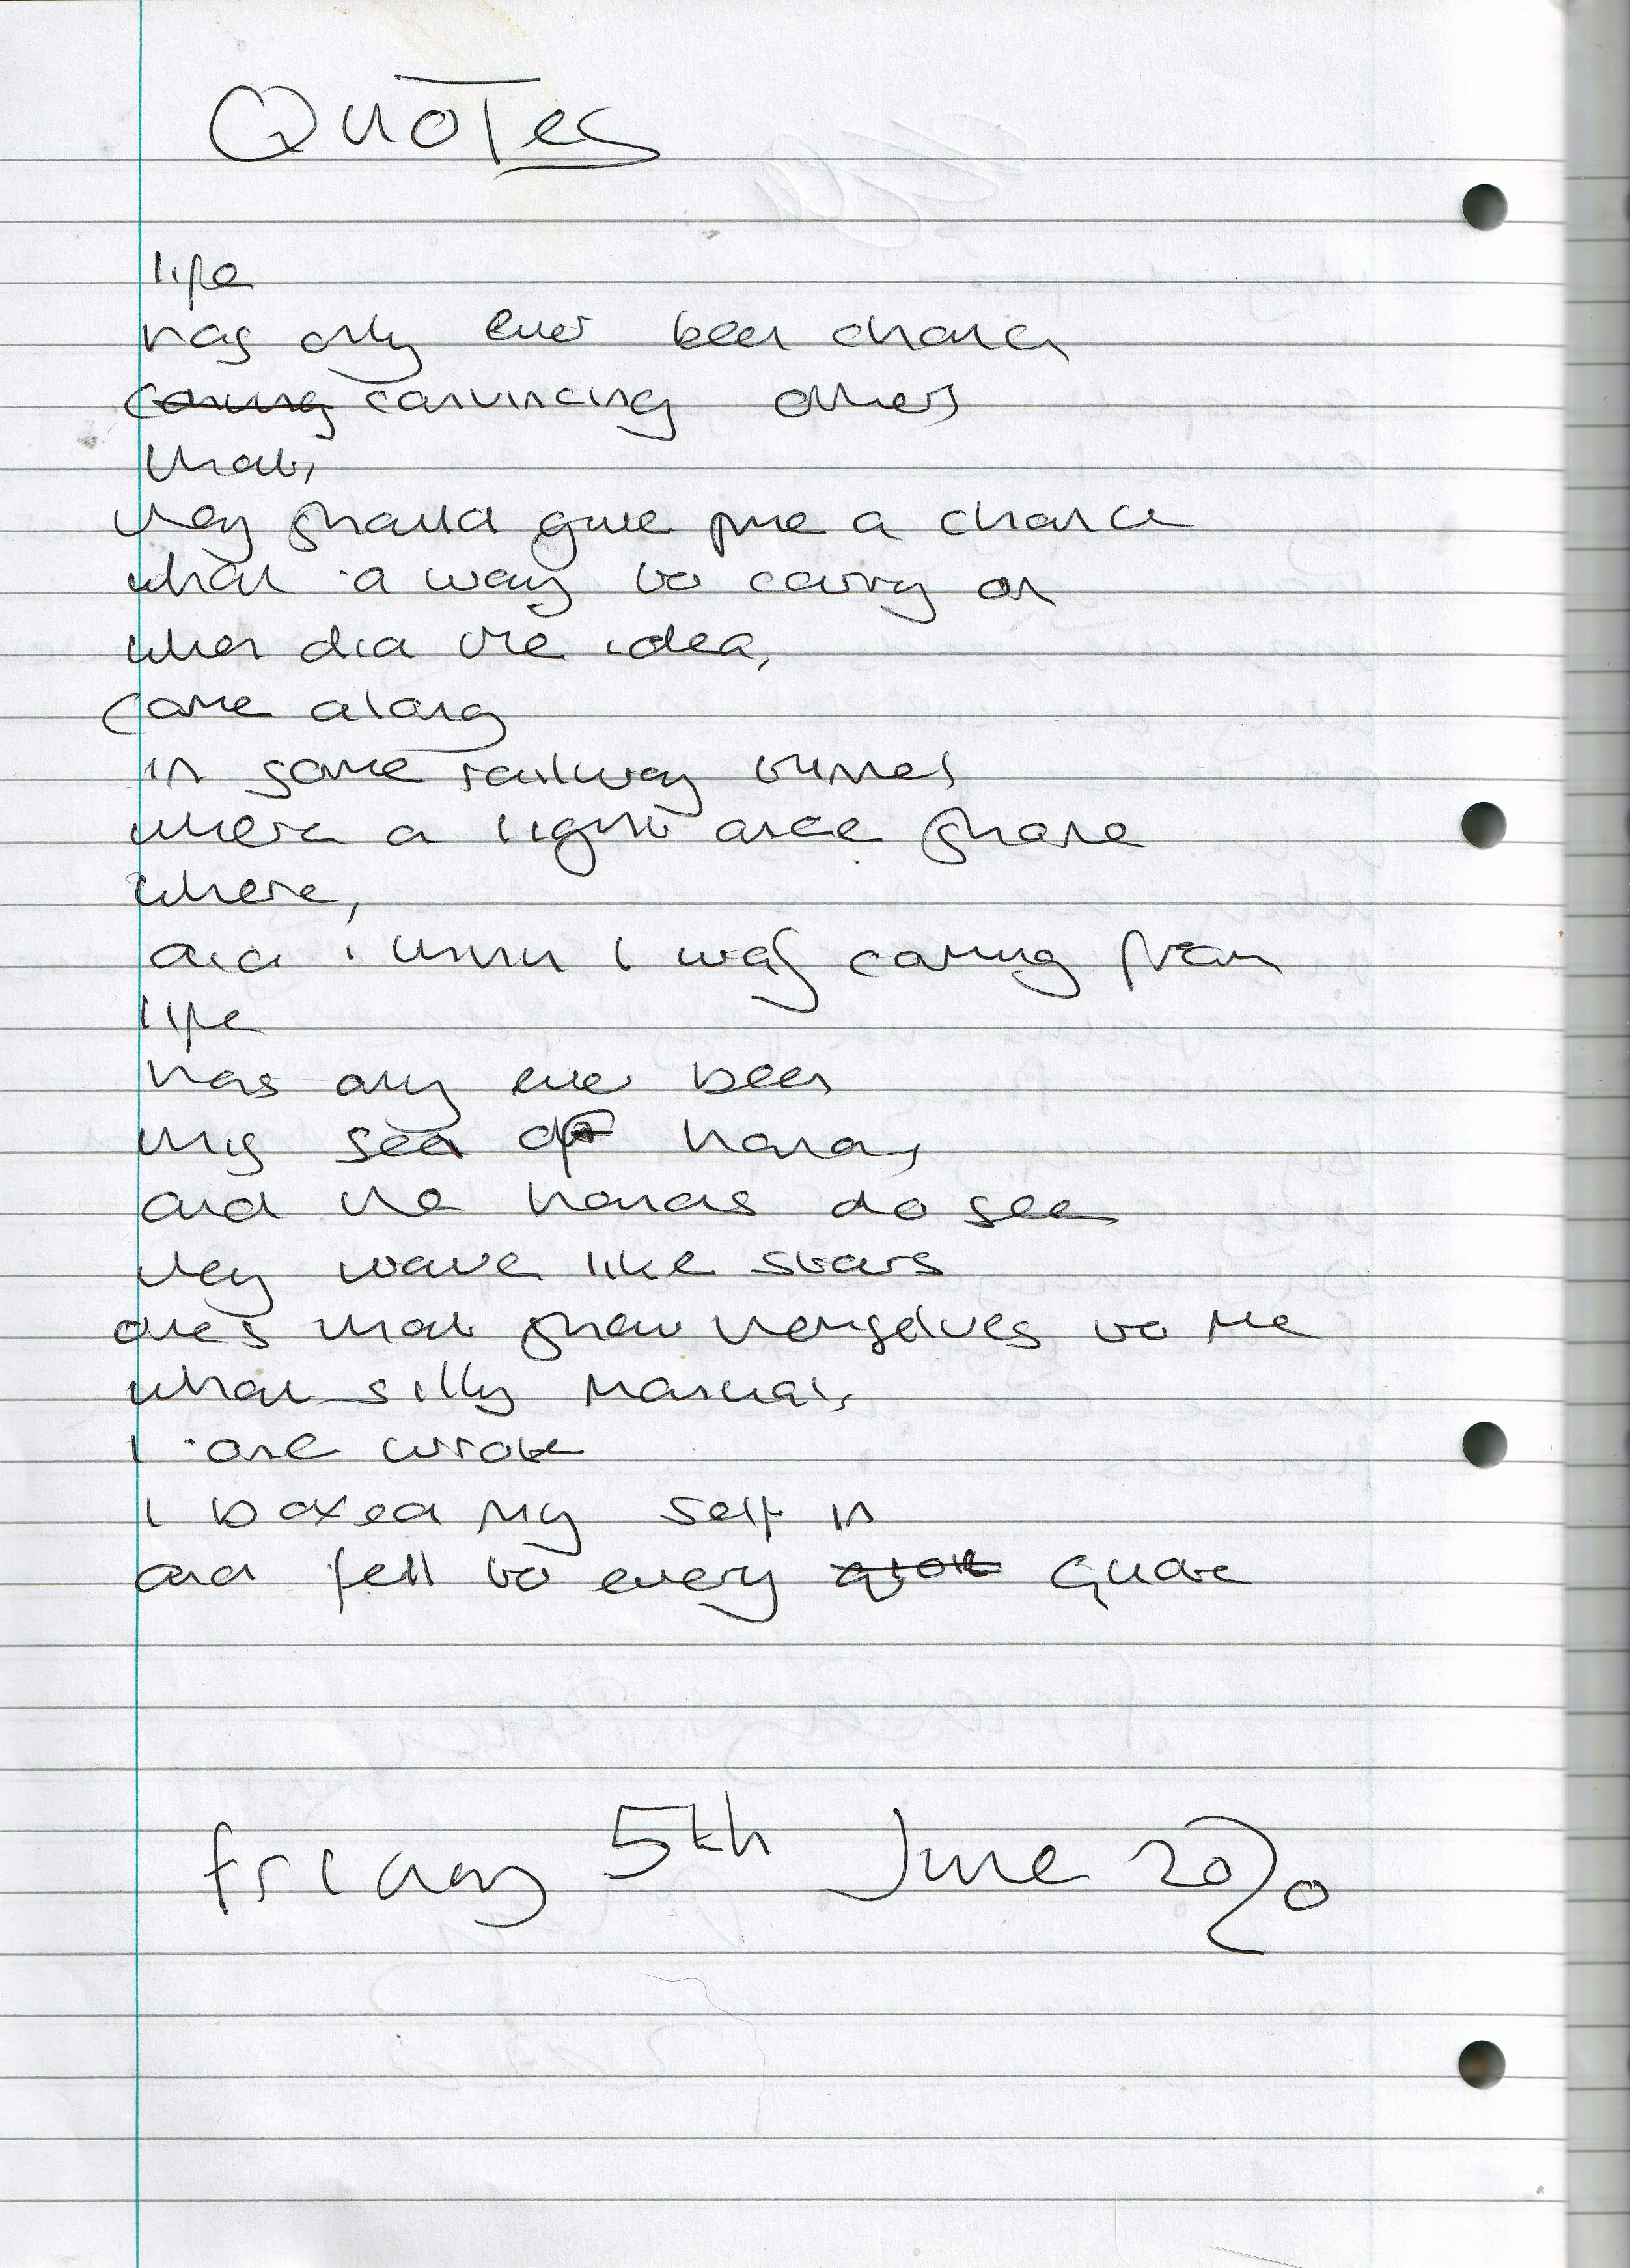 Quotes
life
has only ever been chance
coming convincing others
that,
they should give me a chance
what a way to carry on
when did the idea,
come along
in some railway tunnel
where a light once shone
where,
did i think I was coming from
life
has only ever been
my sea of hands
and the hands do see
they wave like stars
ones that show themselves to me
what silly manual,
I one wrote
I boxed my self in
and fell to every quote
Friday 5th June 2020